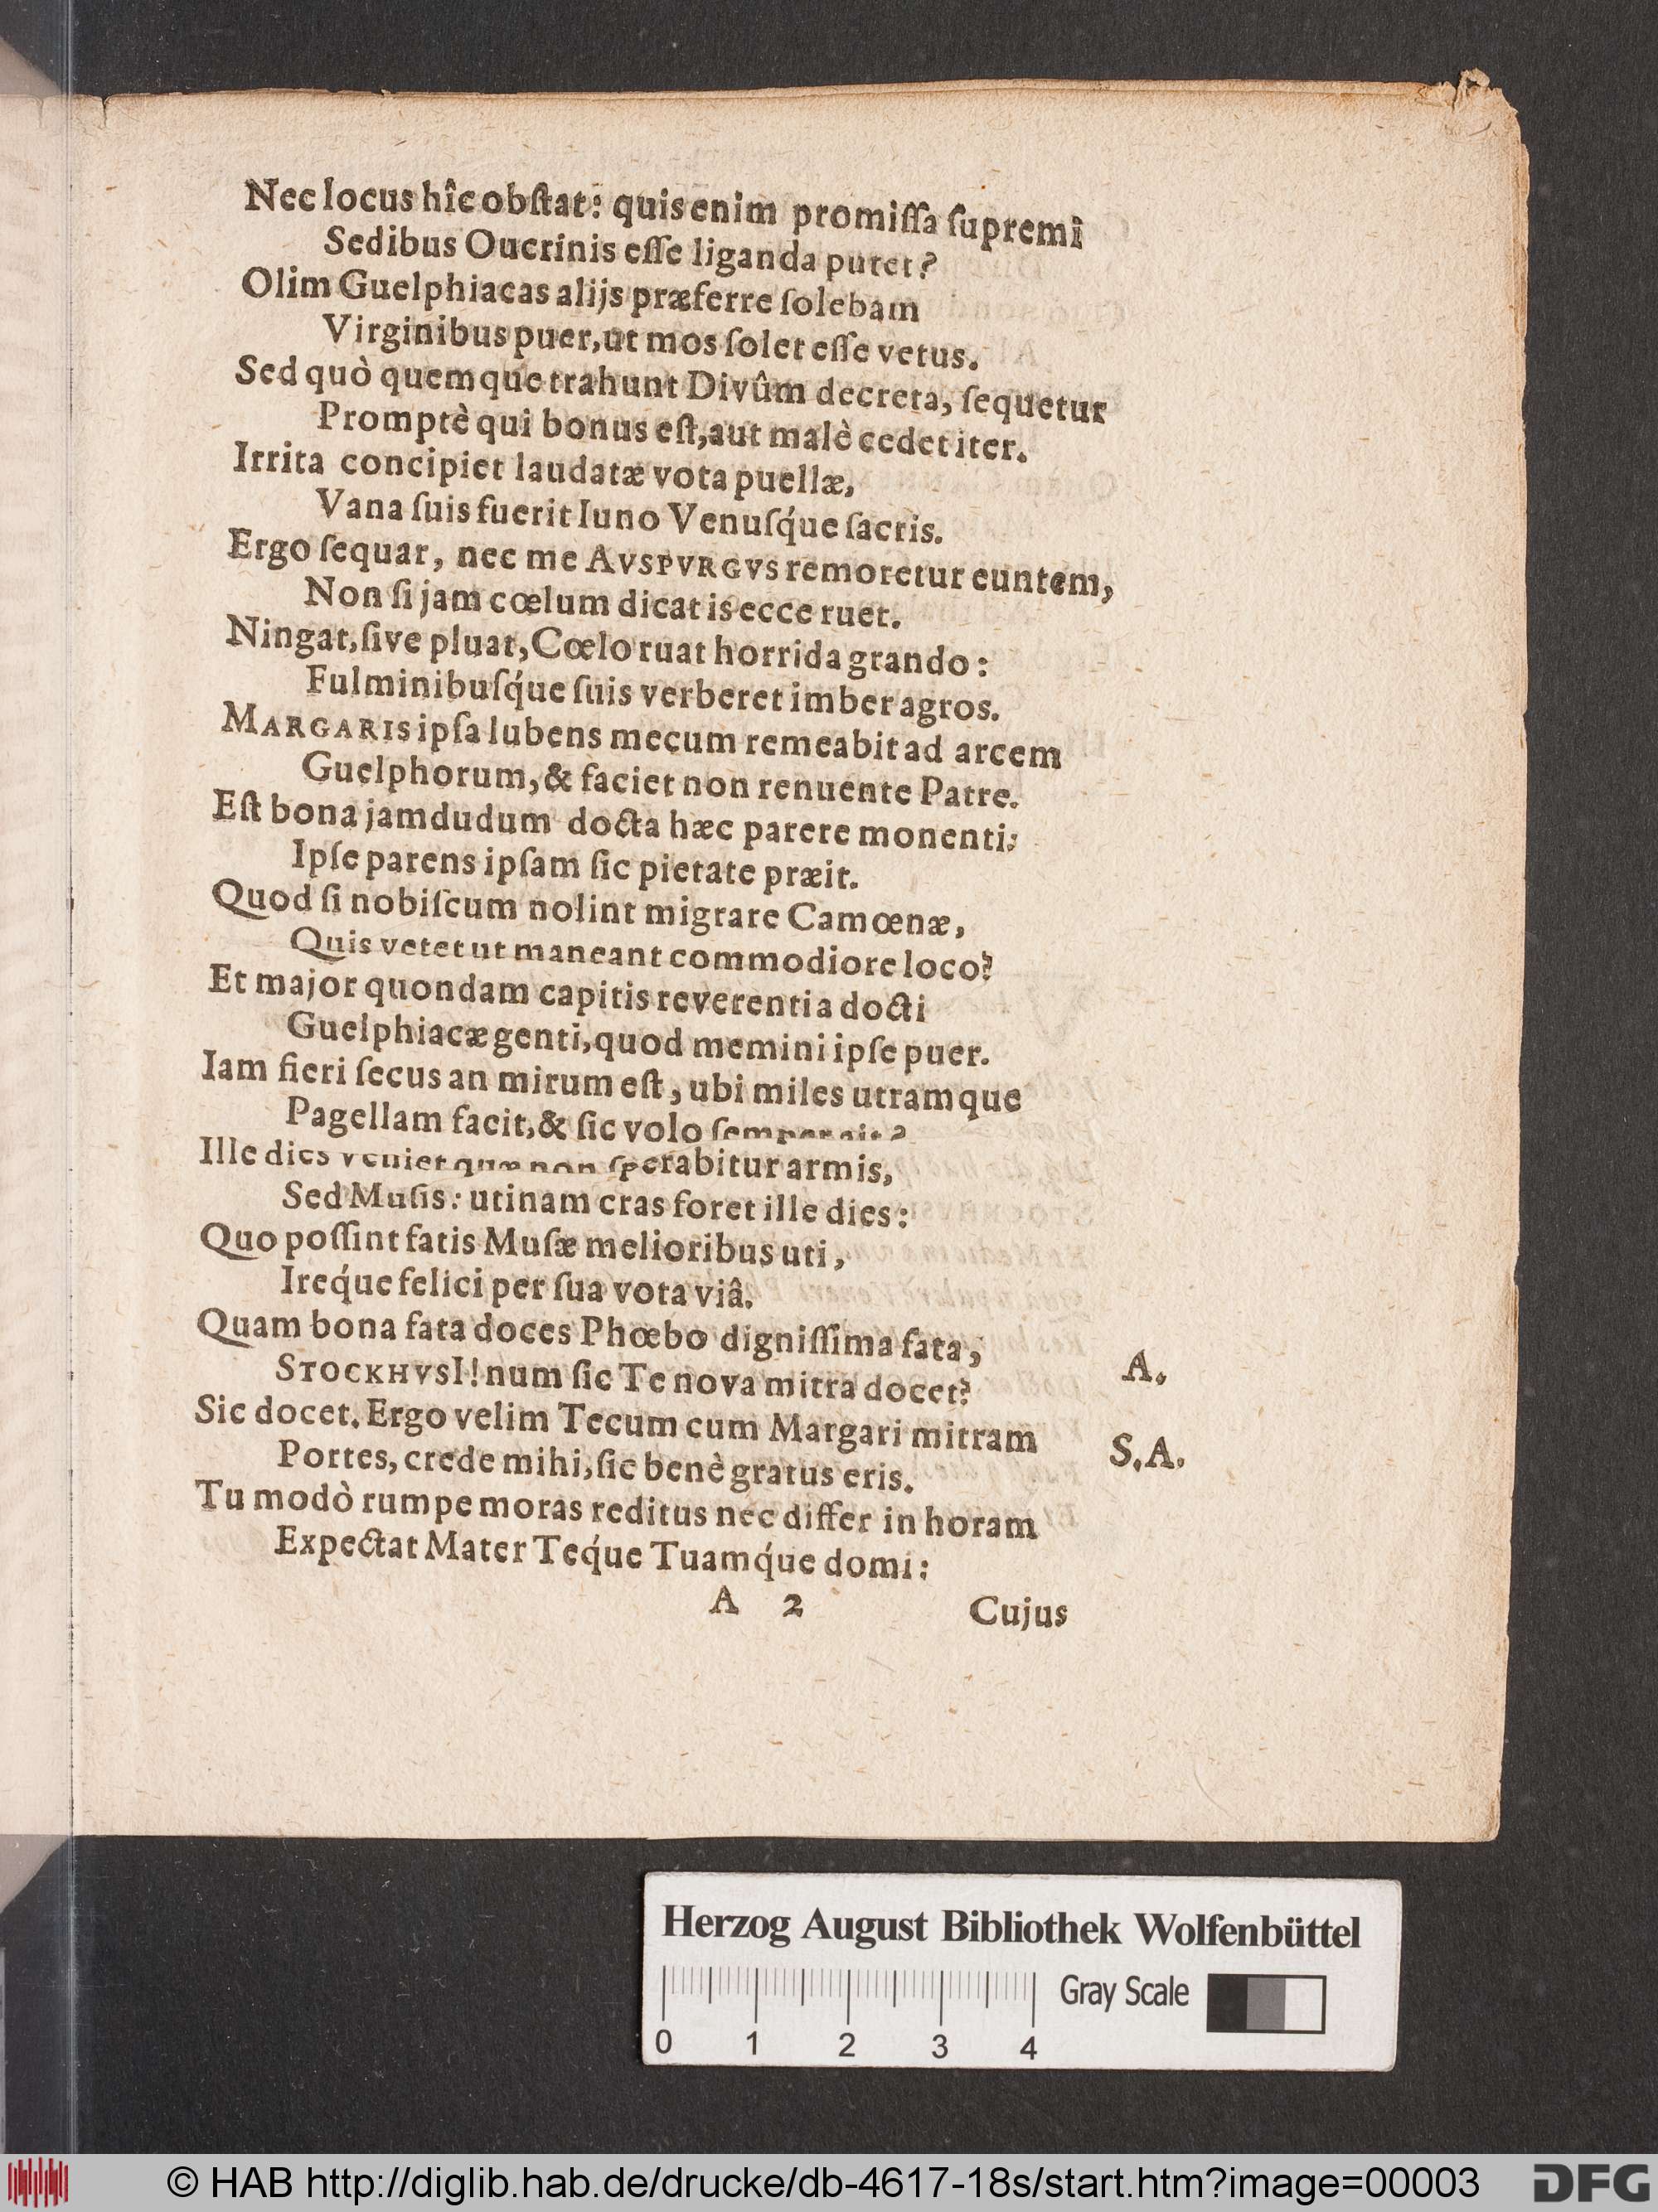 Nec locus hîc obſtat: quis enim promiſſa ſupremi
Sedibus Ouerinis eſſe liganda putet?
Olim Guelphiacas alijs præferre ſolebam
Virginibus puer, ut mos ſolet eſſe vetus.
Sed quò quemque trahunt Divûm decreta, ſequetur
Promptè qui bonus eſt, aut malè cedet iter.
Irrita concipiet laudatæ vota puellæ,
Vana ſuis fuerit Iuno Venuſq́ue ſacris.
Ergo ſequar, nec me AVSPVRGVS remoretur euntem,
Non ſi jam cœlum dicat is ecce ruet.
Ningat, ſive pluat, Cœlo ruat horrida grando:
Fulminibuſq́ue ſuis verberet imber agros.
MARGARIS ipſa lubens mecum remeabit ad arcem
Guelphorum, & faciet non renuente Patre.
Eſt bona jamdudum docta hæc parere monenti;
Ipſe parens ipſam ſic pietate præit.
Quod ſi nobiſcum nolint migrare Camœnæ,
Quis vetet ut maneant commodiore loco?
Et major quondam capitis reverentia docti
Guelphiacæ genti, quod memini ipſe puer.
Iam fieri ſecus an mirum eſt, ubi miles utramque
Pagellam facit, & ſic volo ſemper ait?
Ille dies veniet quæ non ſperabitur armis,
Sed Muſis: utinam cras foret ille dies:
Quo poſſint fatis Muſæ melioribus uti,
Ireq́ue felici per ſua vota viâ.
Quam bona fata doces Phœbo digniſſima fata,
A.
STOCKHVSI! num ſic Te nova mitra docet?
Sic docet. Ergo velim Tecum cum Margari mitram
S.A.
Portes, crede mihi, ſic benè gratus eris.
Tu modò rumpe moras reditus nec differ in horam
Expectat Mater Teq́ue Tuamq́ue domi:
A 2
Cujus
Herzog August Bibliothek Wolfenbüttel
Gray Scale
0 1 2 3 4
© HAB http://diglib.hab.de/drucke/db-4617-18s/start.htm?image=00003
DFG